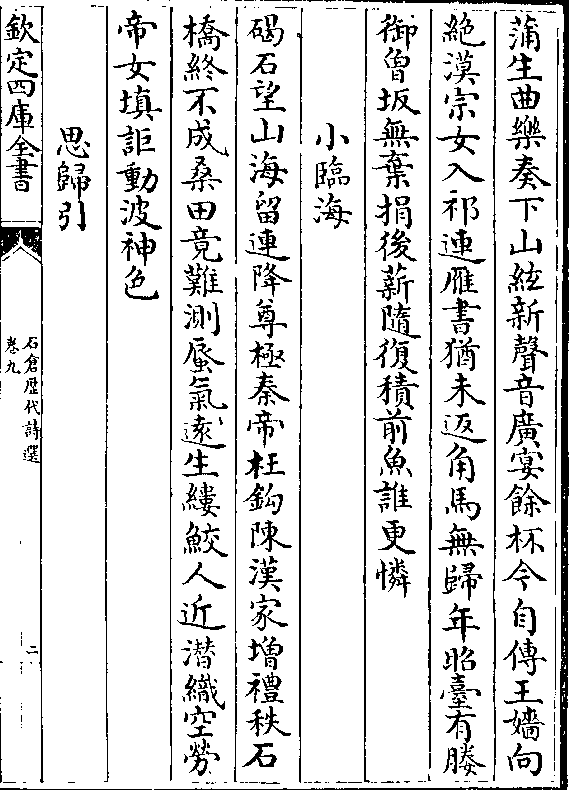 蒲生曲樂奏下山絃新聲音廣宴餘杯今自傳王嬙向
絶漠宗女入祁連雁書猶未返角馬無歸年昭臺有媵
御曾坂無棄捐後薪隨復積前魚誰更憐
小臨海
碣石望山海留連降尊極秦帝枉鈎陳漢家增禮秩石
橋終不成桑田竟難測蜃氣遠生縷鮫人近潛織空勞
帝女填詎動波神色
思歸引
欽定四庫全書
石倉歷代詩選
卷九
二